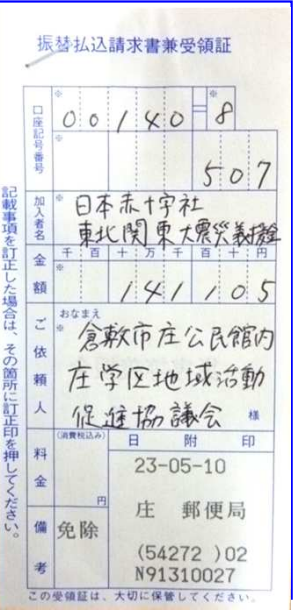 振替払込請求書兼受領証
口座記号番号
※ 00140=※8
507
加入者名
※ 日本赤十字社
東北関東大震災義援金
金額
千 百 十 万 千 百 十 円
※ 141105
ご依頼人
おなまえ
※ 倉敷市庄公民館内
庄学区地域活動
促進協議会 様
料金
(消費税込み)
円
日 附 印
23-05-10
庄 郵便局
(54272 )02
N91310027
備考
免除
記載事項を訂正した場合は、その箇所に訂正印を押してください。
この受領証は、大切に保管してください。